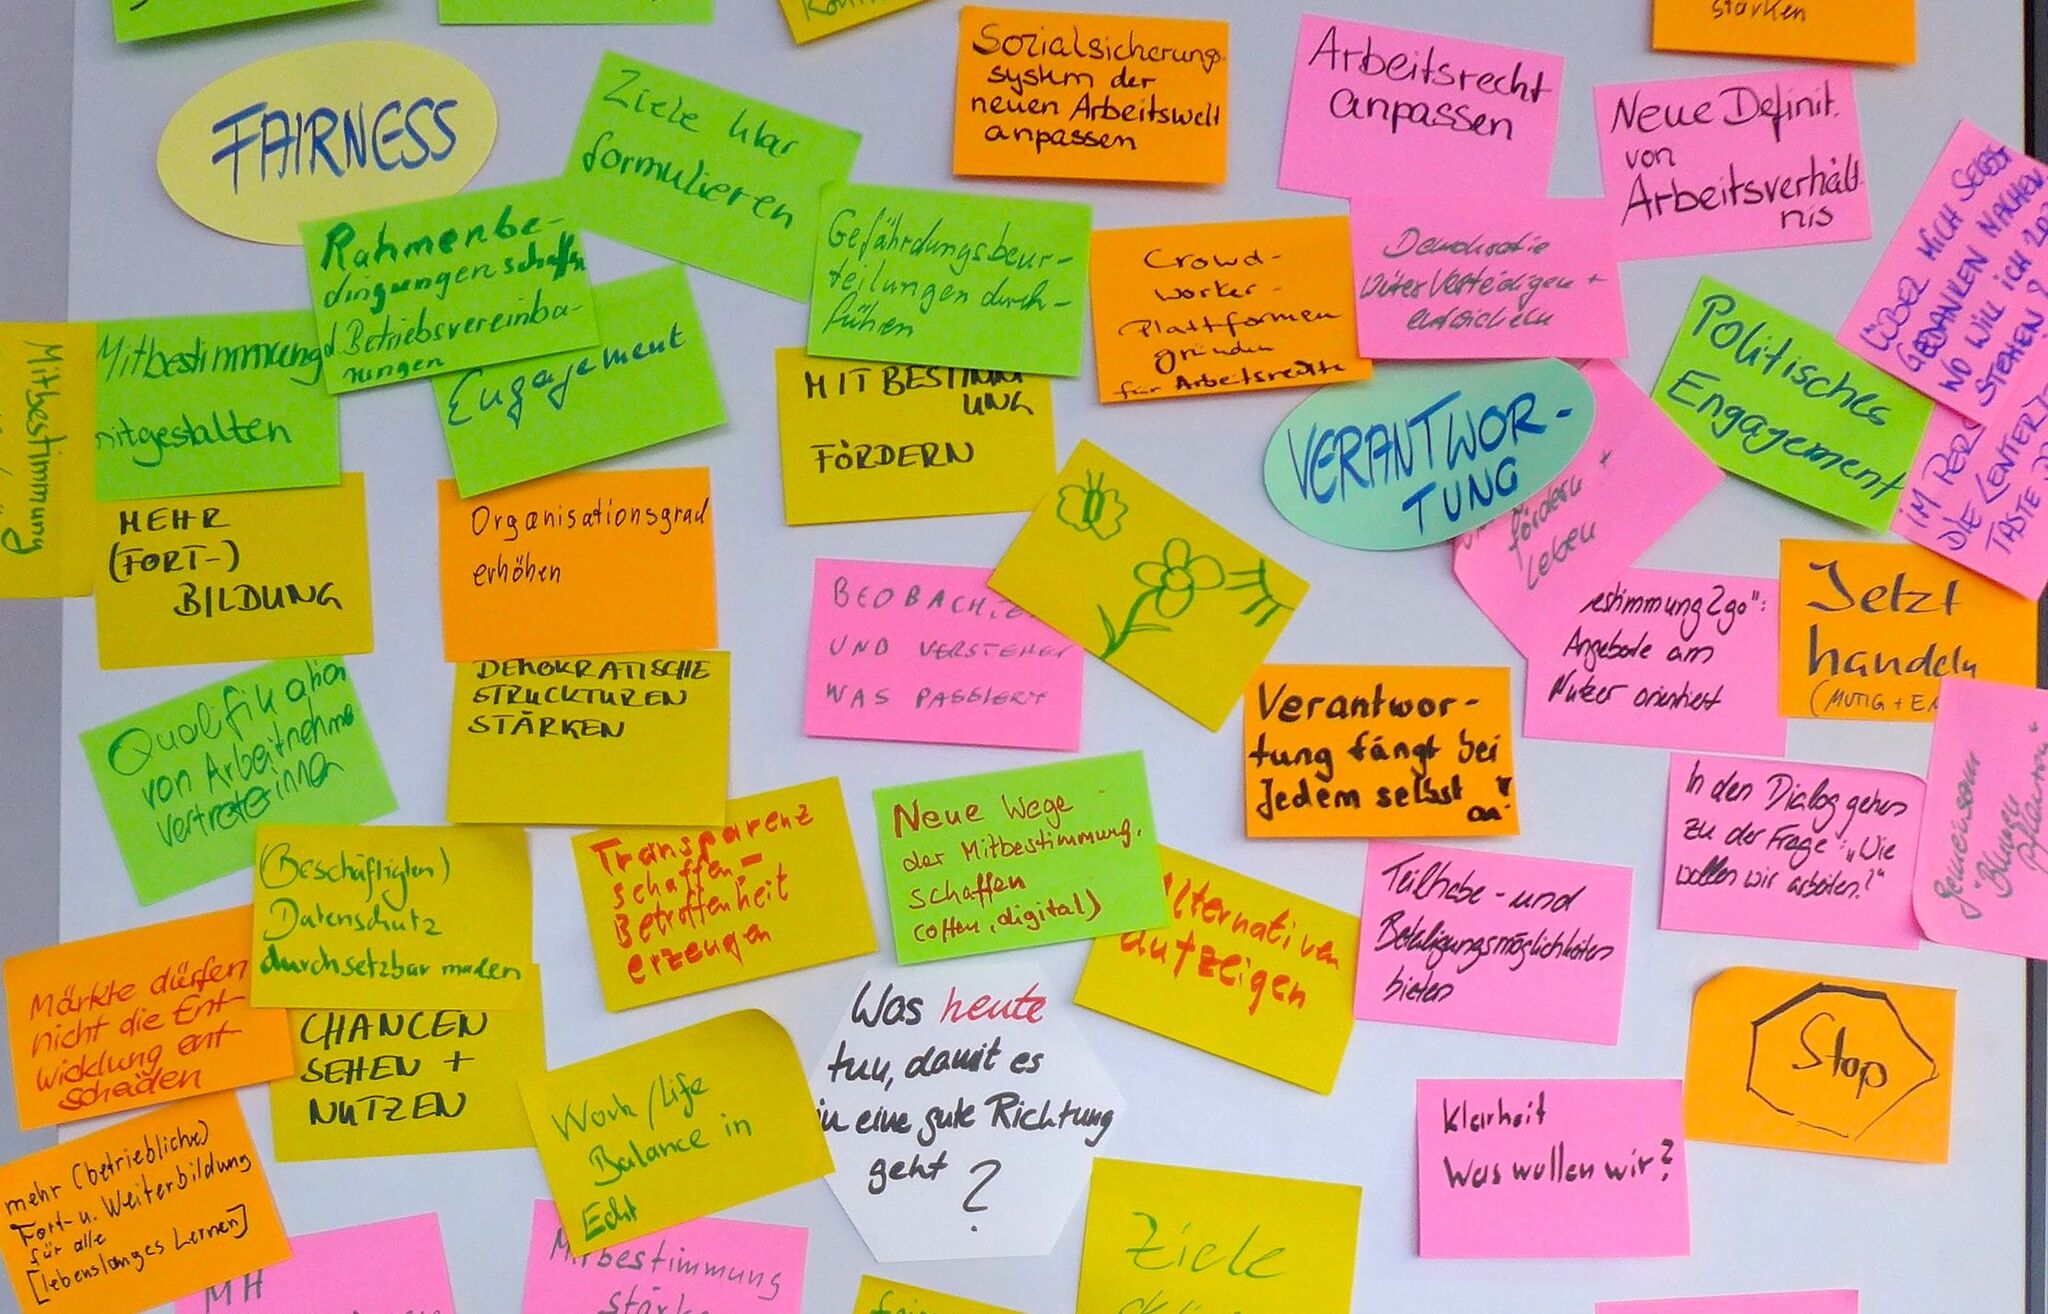 stärken
FAIRNESS
Ziele klar
formulieren
Sozialsicherungs-
system der
neuen Arbeitswelt
anpassen
Arbeitsrecht
anpassen
Neue Definit.
von
Arbeitsverhält-
nis
ÜBER MICH SELBST
GEDANKEN MACHEN.
WO WILL ICH
STEHEN?
Rahmenbe-
dingungen schaffen
Betriebsvereinba-
rungen
Gefährdungsbeur-
teilungen durch-
führen
Crowd-
worker-
Plattformen
gründen
für Arbeitsrechte
Demokratie
Verteidigen +
entwickeln
Politisches
Engagement
Mitbestimmung
Mitbestimmung
mitgestalten
Engagement
MITBESTIMM
UNG
FÖRDERN
VERANTWOR-
TUNG
fördern +
Leben
IM PER
DIE
TASTE
MEHR
(FORT-)
BILDUNG
Organisationsgrad
erhöhen
BEOBACHTE
UND VERSTEHEN
WAS PASSIERT
estimmung2go":
Angebote am
Nutzer orientiert
Jetzt
handeln
(MUTIG + EN
Qualifikation
von Arbeitnehme
vertreterinnen
DEMOKRATISCHE
STRUKTUREN
STÄRKEN
Verantwor-
tung fängt bei
Jedem selbst
an!
In den Dialog gehen
zu der Frage: „Wie
wollen wir arbeiten?"
Gemeinsam
"Blumen
Pflanzen"
(Beschäftigten)
Datenschutz
durchsetzbar machen
Transparenz
schaffen-
Betroffenheit
erzeugen
Neue Wege
der Mitbestimmung
schaffen
(offen, digital)
Alternativen
aufzeigen
Teilhabe- und
Beteiligungsmöglichkeiten
bieten
Märkte dürfen
nicht die Ent-
wicklung ent-
scheiden
CHANCEN
SEHEN +
NUTZEN
Work/Life
Balance in
Echt
Was heute
tun, damit es
in eine gute Richtung
geht?
Stop
Klarheit
Was wollen wir?
mehr (betriebliche)
Fort- u. Weiterbildung
für alle
[lebenslanges Lernen]
MH
Mitbestimmung
stärke
Ziele